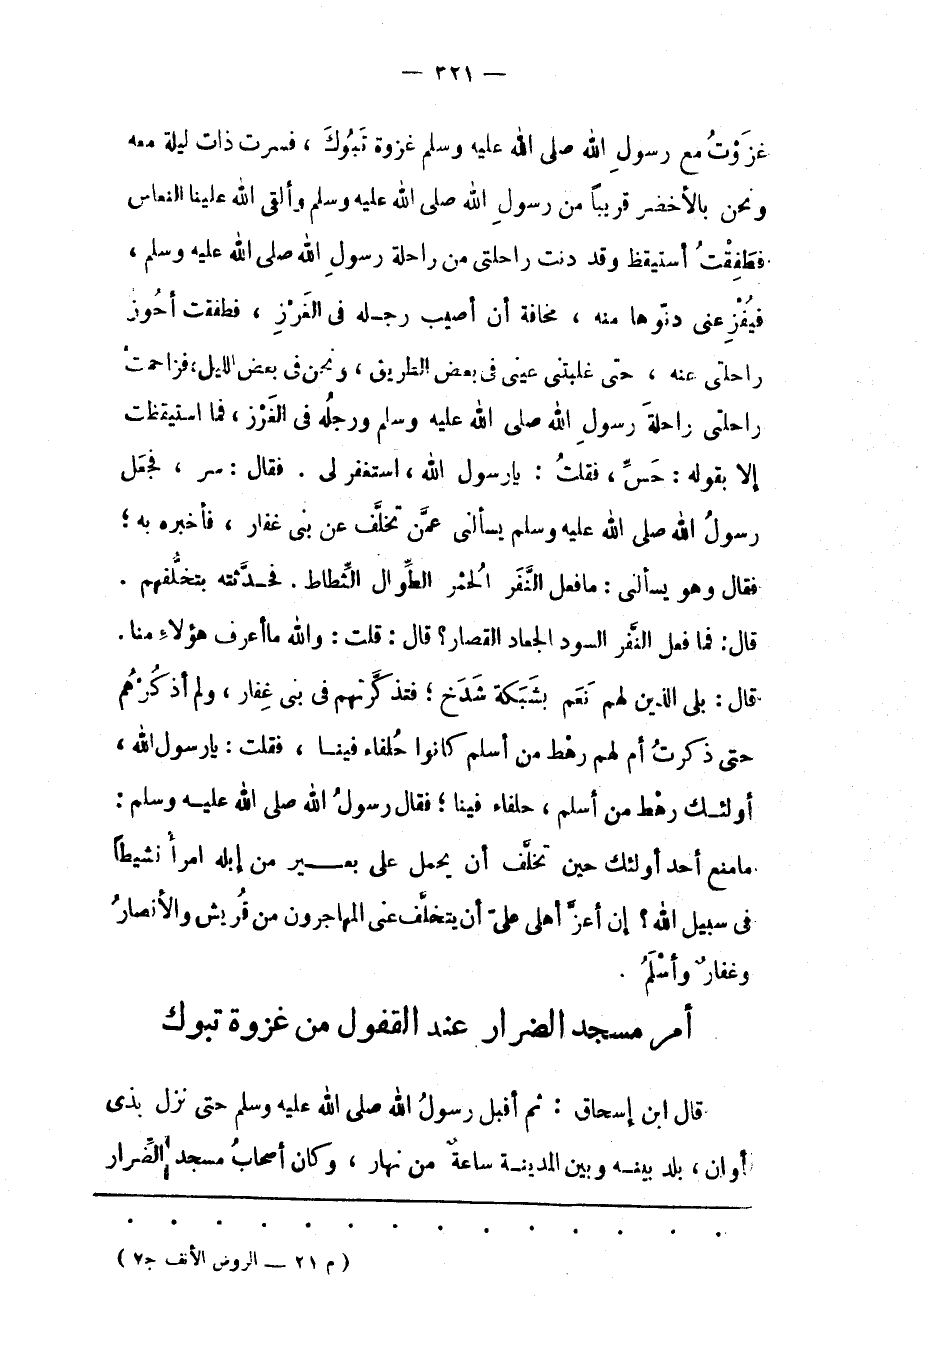 — ٣٢١ —
غزَوْتُ مع رسولِ الله صلى الله عليه وسلم غزوة تَبُوكَ ، فسرت ذات ليلة معه
ونحن بالأخضر قريباً من رسولِ الله صلى الله عليه وسلم وألقى الله علينا النعاس
فطَفِقْتُ أستيقظ وقد دنت راحلتى من راحلة رسولِ الله صلى الله عليه وسلم ،
فيُفْزِعنى دنوّها منه ، مخافة أن أصيب رجله فى الغَرْزِ ، فطفقت أحُوز
راحلتى عنه ، حتى غلبتنى عينى فى بعض الطريق ، ونحن فى بعض الليل ؛ فزاحمتْ
راحلتى راحلةَ رسولِ الله صلى الله عليه وسلم ورجلُه فى الغَرْز ، فما استيقظت
إلا بقوله : حَسِّ ، فقلتُ : يارسول الله ، استغفر لى . فقال : سر ، فجعَل
رسولُ الله صلى الله عليه وسلم يسألنى عمَّن تخلَّف عن بنى غفار ، فأخبره به ؛
فقال وهو يسألنى : مافعل النَّفَر الُحمْر الطِّوال الثِّطاط . فحدَّثته بتخلُّفهم .
قال : فما فعل النَّفر السود الجعاد القصار؟ قال : قلت : والله ماأعرف هؤلاءِ منا .
قال : بلى الذين لهم نَعَم بشَبَكة شَدَخ ؛ فتذكَّرتهم فى بنى غِفار ، ولم أذكُرْهُم
حتى ذكرتُ أم لهم رهْط من أسلم كانوا حُلفاء فينا ، فقلت : يارسول الله ،
أولئك رهْط من أسلم ، حلفاء فينا ؛ فقال رسولُ الله صلى الله عليه وسلم :
مامنع أحد أولئك حين تخلَّف أن يحمل على بعير من إبله امرأً نشيطاً
فى سبيل الله ؟ إن أعزَّ أهلى علىّ أن يتخلَّف عنى المهاجرون من قُريش والأنصارُ
وغفارٌ وأسْلَمُ .
أمر مسجد الضرار عند القفول من غزوة تبوك
قال ابن إسحاق : ثم أقبل رسولُ الله صلى الله عليه وسلم حتى نزل بذى
أوان ، بلد بينه وبين المدينة ساعةٌ من نهار ، وكان أصحابُ مسجد الضِّرار
. . . . . . . . . . . . . .
( م ٢١ — الروض الأنف ج٧ )